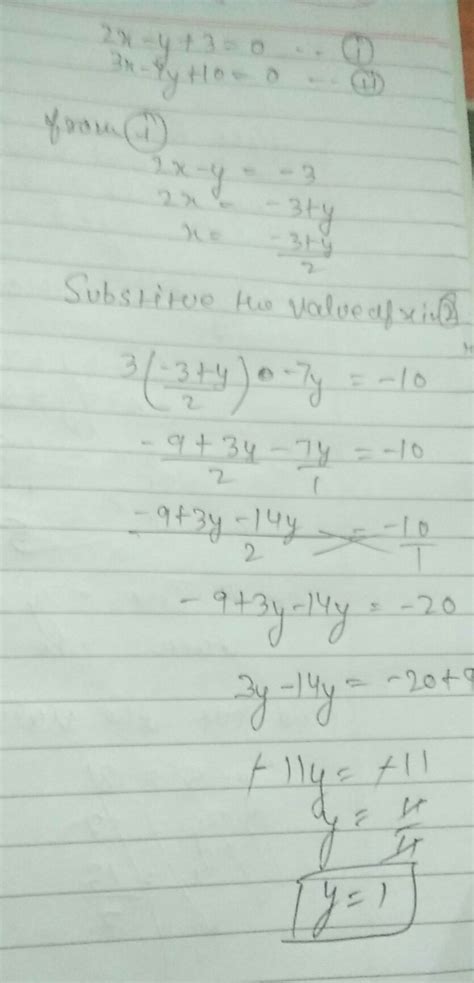 2x-y+3=0 ... ①
3x-7y+10=0 ... ⑪
from ①
2x-y= -3
2x= -3+y
x= -3+y/2
Substitve the value of x in②
3(-3+y/2) -7y = -10
-9+3y/2 - 7y/1 = -10
-9+3y-14y/2 = -10/1
-9+3y-14y = -20
3y-14y = -20+9
+11y= +11
y= 11/11
y=1